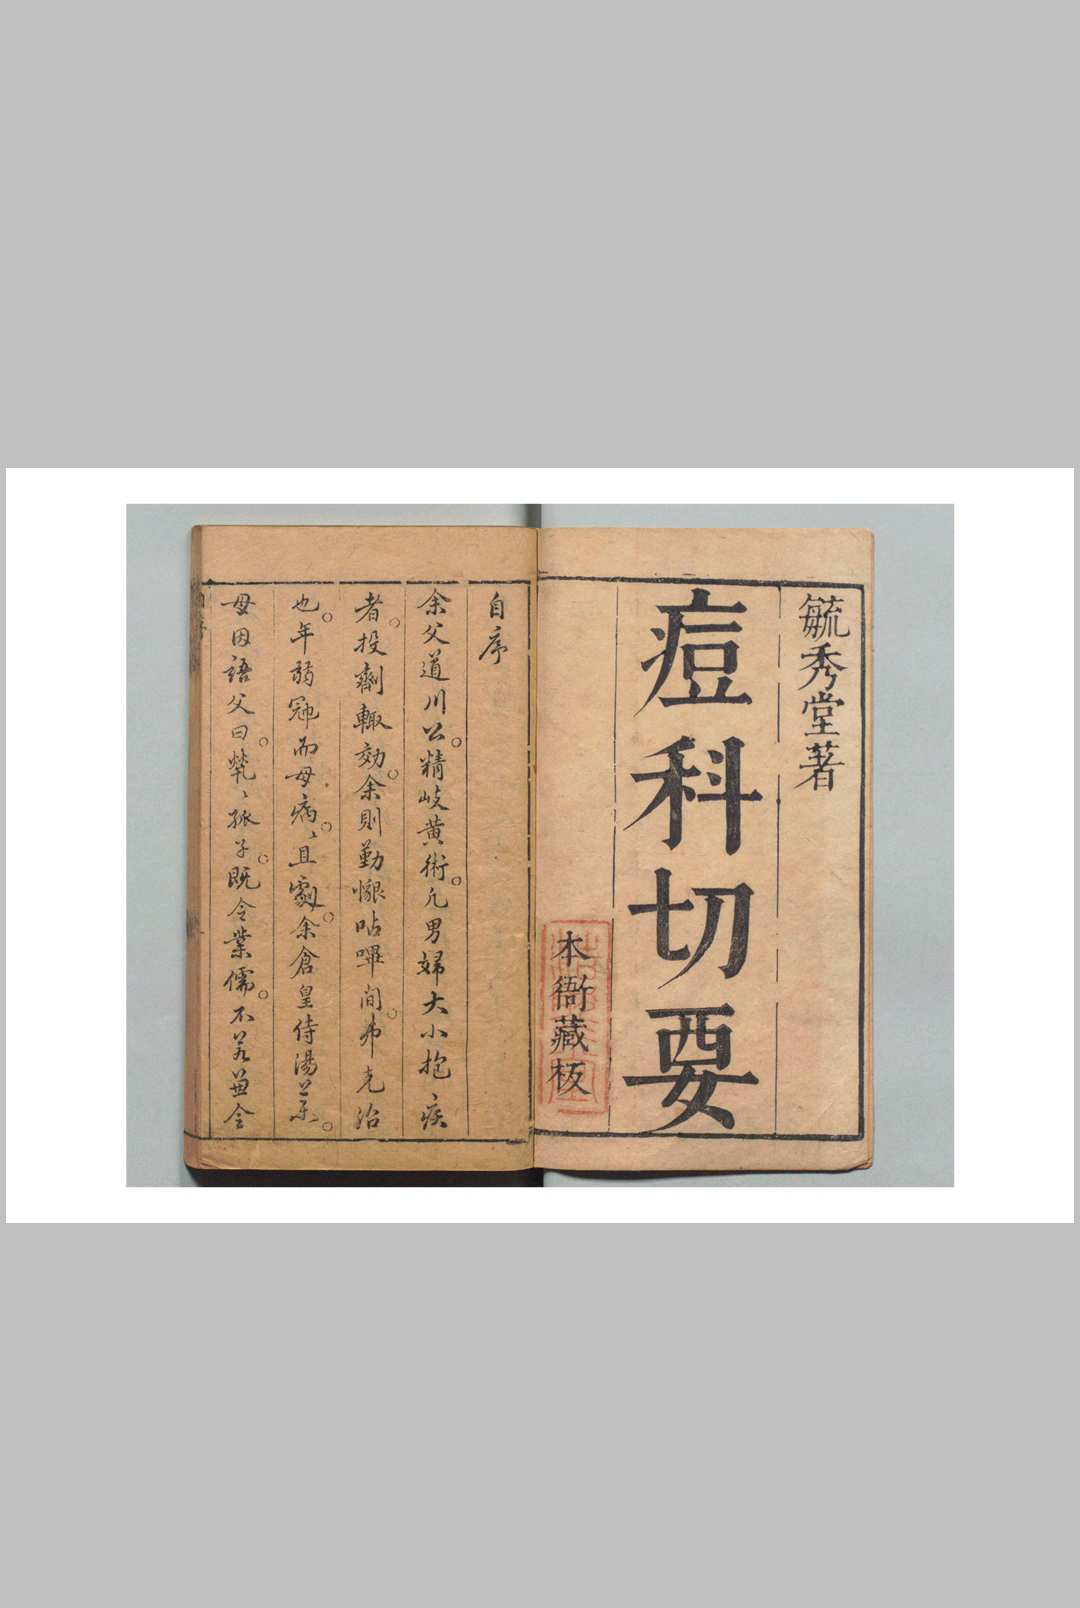 毓秀堂著
痘科切要
本衙藏板
自序
余父道川公。精岐黄術。凡男婦大小抱疾
者。投劑輙效。余則勤懇呫嗶間。弗克治
也。年弱冠而母病。〻且劇。余倉皇侍湯藥。
母因語父曰。煢〻孤子。既令業儒。不若兼令